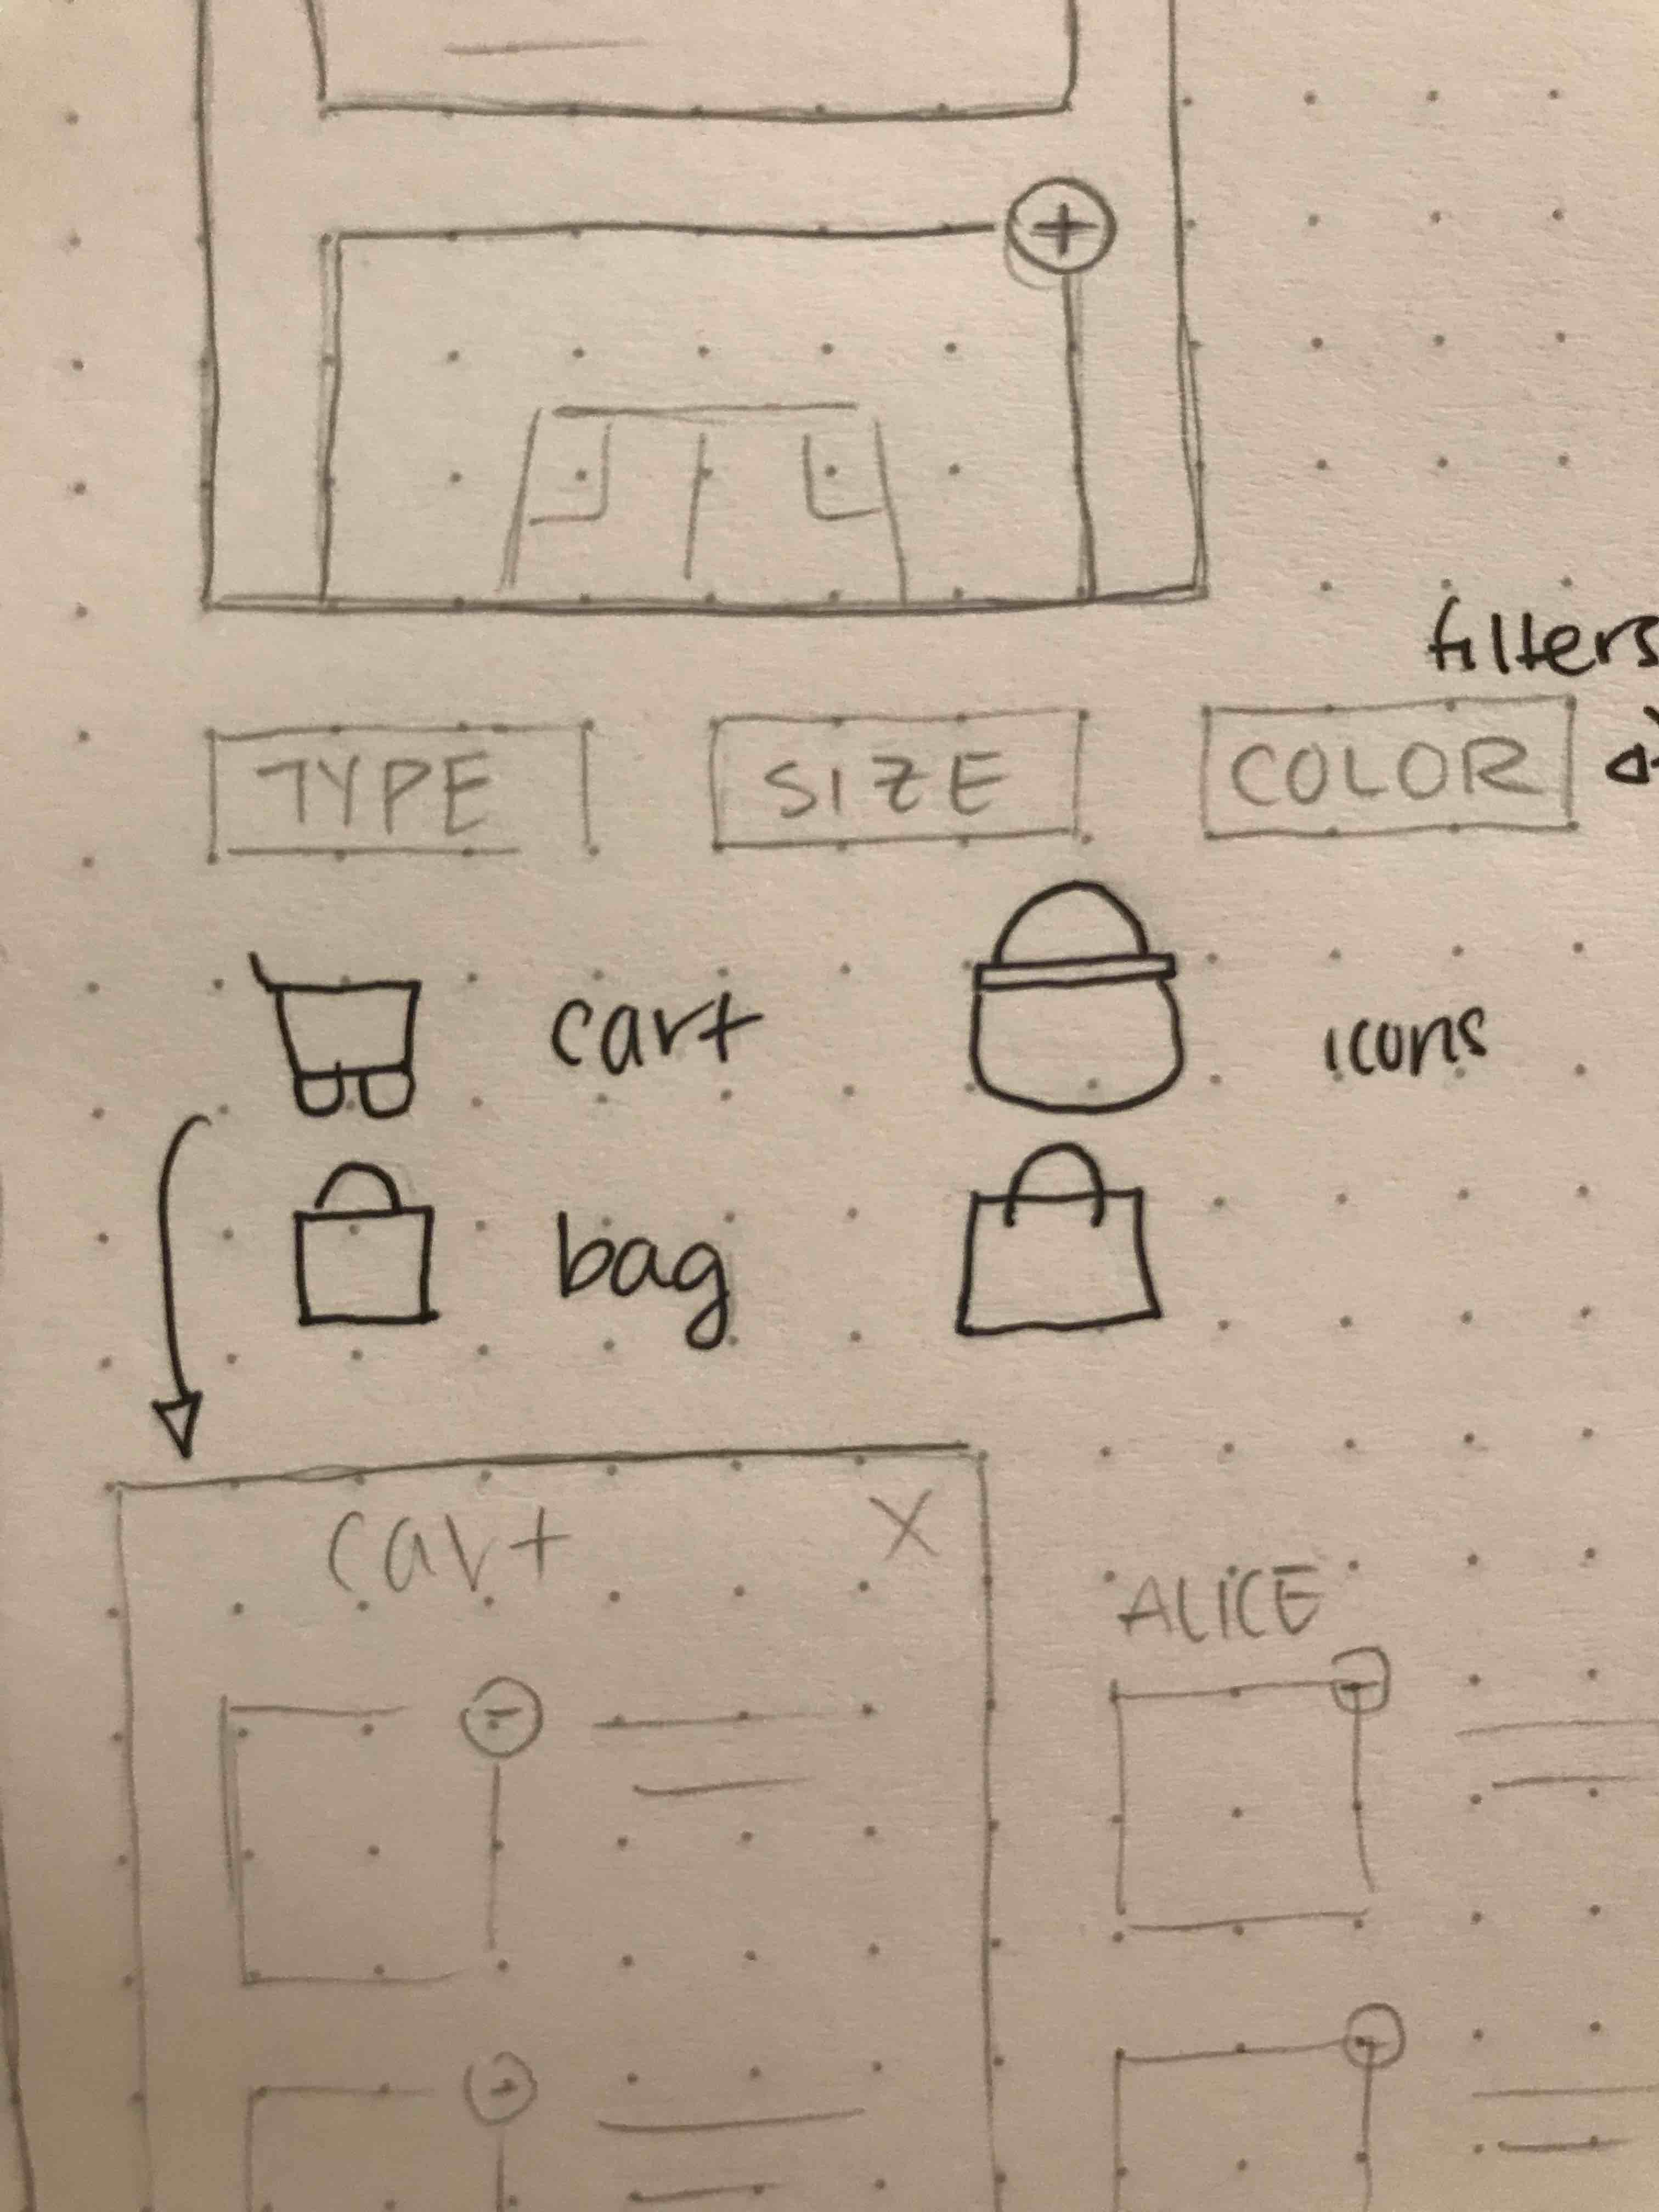 filters
TYPE SIZE COLOR
cart
icons
bag
cart X
ALICE